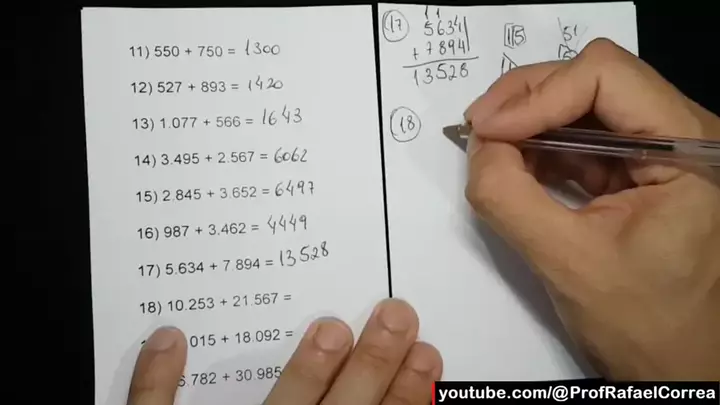 11) 550 + 750 = 1300
12) 527 + 893 = 1420
13) 1.077 + 566 = 1643
14) 3.495 + 2.567 = 6062
15) 2.845 + 3.652 = 6497
16) 987 + 3.462 = 4449
17) 5.634 + 7.894 = 13528
18) 10.253 + 21.567 =
015 + 18.092 =
6.782 + 30.985
17
11
5634
+ 7894
13528
15
18
youtube.com/@ProfRafaelCorrea